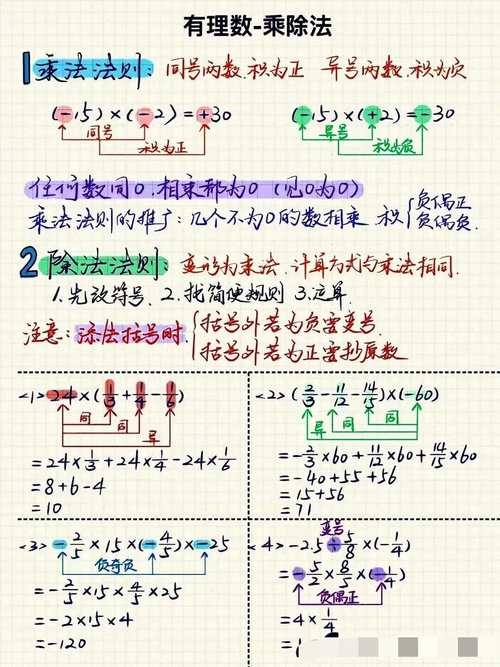 有理数-乘除法
1 乘法法则: 同号两数,积为正 异号两数,积为负
(-15)×(-2)=+30 (-15)×(+2)=-30
同号 异号
积为正 积为负
任何数同0,相乘都为0 (见0为0)
乘法法则的推广:几个不为0的数相乘,积{负偶正
负偶负
2 除法法则: 变形为乘法,计算方式与乘法相同.
1.先改符号. 2.找简便规则 3.运算.
注意: 添法括号时 {括号外若为负要变号.
括号外若为正要抄原数
<1> 24×(1/3+1/4-1/6)
同
同
异
=24×1/3+24×1/4-24×1/6
=8+6-4
=10
<2> (2/3-11/12-14/15)×(-60)
同
异 同
=-2/3×60+11/12×60+14/15×60
=-40+55+56
=15+56
=71
<3> -2/5×15×(-4/5)×-25
负奇负
=-2/5×15×4/5×25
=-2×15×4
=-120
变号
<4> -2.5÷5/8×(-1/4)
=-5/2×8/5×(-1/4)
负偶正
=4×1/4